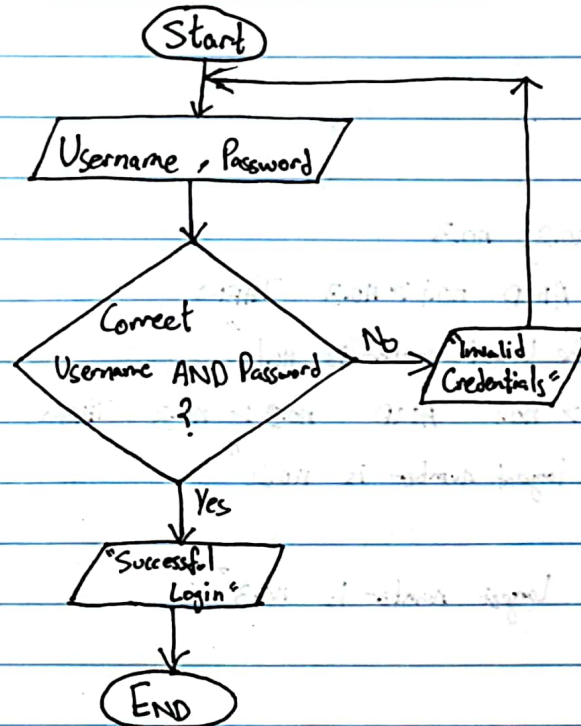 Start
Username , Password
Correct
Username AND Password
?
No
"Invalid
Credentials"
Yes
"Successful
Login"
END